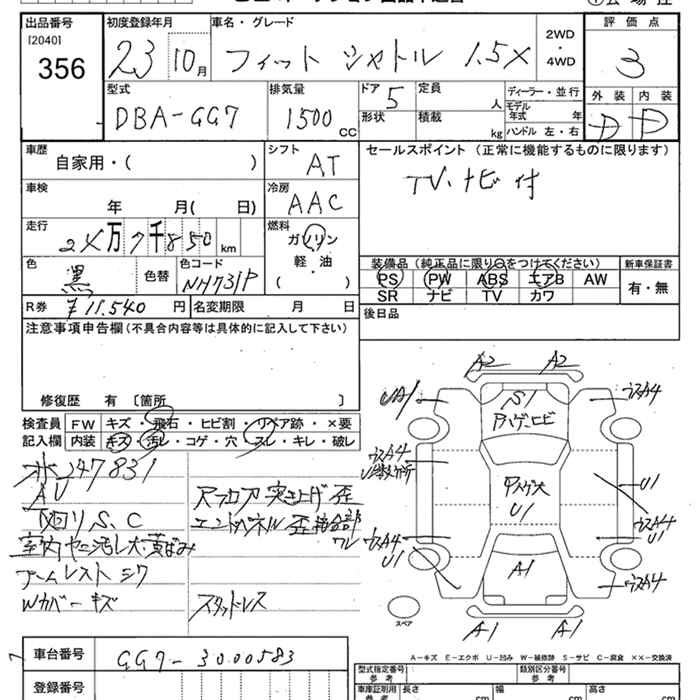 出品番号
[2040]
356
初度登録年月
23 10月
車名・グレード
フィット シャトル 1.5X
2WD
・
4WD
評価点
3
外装 内装
D D
型式
DBA-GG7
排気量
1500 CC
ドア 5
形状
定員 人
積載 kg
ディーラー・並行
モデル年式 年
ハンドル 左・右
車歴
自家用・( )
シフト
AT
車検
年 月( 日)
冷房
AAC
走行
24万7千850 km
燃料
ガソリン
軽・油
( )
色
黒
色替
色コード
NH731P
R券 ¥11,540 円
名変期限 月 日
セールスポイント (正常に機能するものに限ります)
TV・ナビ付
装備品 (純正品に限り○をつけてください)
PS PW ABS エアB AW
SR ナビ TV カワ
新車保証書
有・無
後日品
注意事項申告欄(不具合内容等は具体的に記入して下さい)
修復歴 有 〔箇所 〕
検査員記入欄
FW キズ・飛石・ヒビ割・リペア跡・×要
内装 キズ・汚レ・コゲ・穴 スレ・キレ・破レ
247831
AU
下回りS、C
室内ヤニ汚レ大・黄ばみ
アームレスト シワ
Wカバーキズ
リアフロア突き上げ歪
エンドパネル歪接合部
ワレ
スタッドレス
A2 A2
UA1
S1
ウスA4
U1
ウスA4
U1
ウスA4
U1
A1
ウスA4
A1 A1
スペア
A-キズ E-エクボ U-凹み W-補修跡 S-サビ C-腐食 ××-交換済
車台番号
GG7-3000583
登録番号
型式指定番号
参考
類別区分番号
参考
車庫証明用
参考
長さ cm
幅 cm
高さ cm